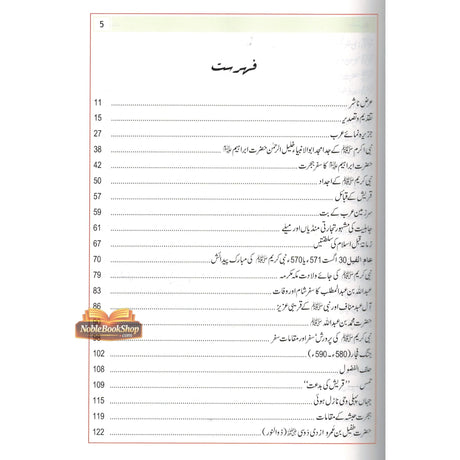 5
فہرست
عرض ناشر 11
تقدیم و تصدیر 15
جزیرہ نمائے عرب 27
نبی اکرم ﷺ کے جد امجد ابوالانبیاء خلیل الرحمٰن حضرت ابراہیم علیہ السلام 38
حضرت ابراہیم علیہ السلام کا سفر ہجرت 42
نبی کریم ﷺ کے اجداد 50
قریش کے قبائل 57
سرزمین عرب کے بت 59
جاہلیت کی مشہور تجارتی منڈیاں اور میلے 61
زمانہ قبل اسلام کی سلطنتیں 67
عام الفیل 30 اگست 571ء یا 570ء نبی کریم ﷺ کی مبارک پیدائش 70
نبی کریم ﷺ کی جائے ولادت مکہ مکرمہ 79
عبداللہ بن عبدالمطلب کا سفر شام اور وفات 83
آل عبد مناف اور نبی ﷺ کے قریبی عزیز 86
حضرت محمد بن عبداللہ ﷺ
نبی کریم ﷺ کی پرورش سفر اور مقامات سفر 98
جنگ فجار (580ء - 590ء) 102
حلف الفضول 108
حمس ..... "قریش کی بدعت" 109
جہاں پہلی وحی نازل ہوئی 115
ہجرت حبشہ کے مقامات 119
حضرت طفیل بن عمرو ازدی دوسی (ذوالنور) 122
NobleBookShop.com